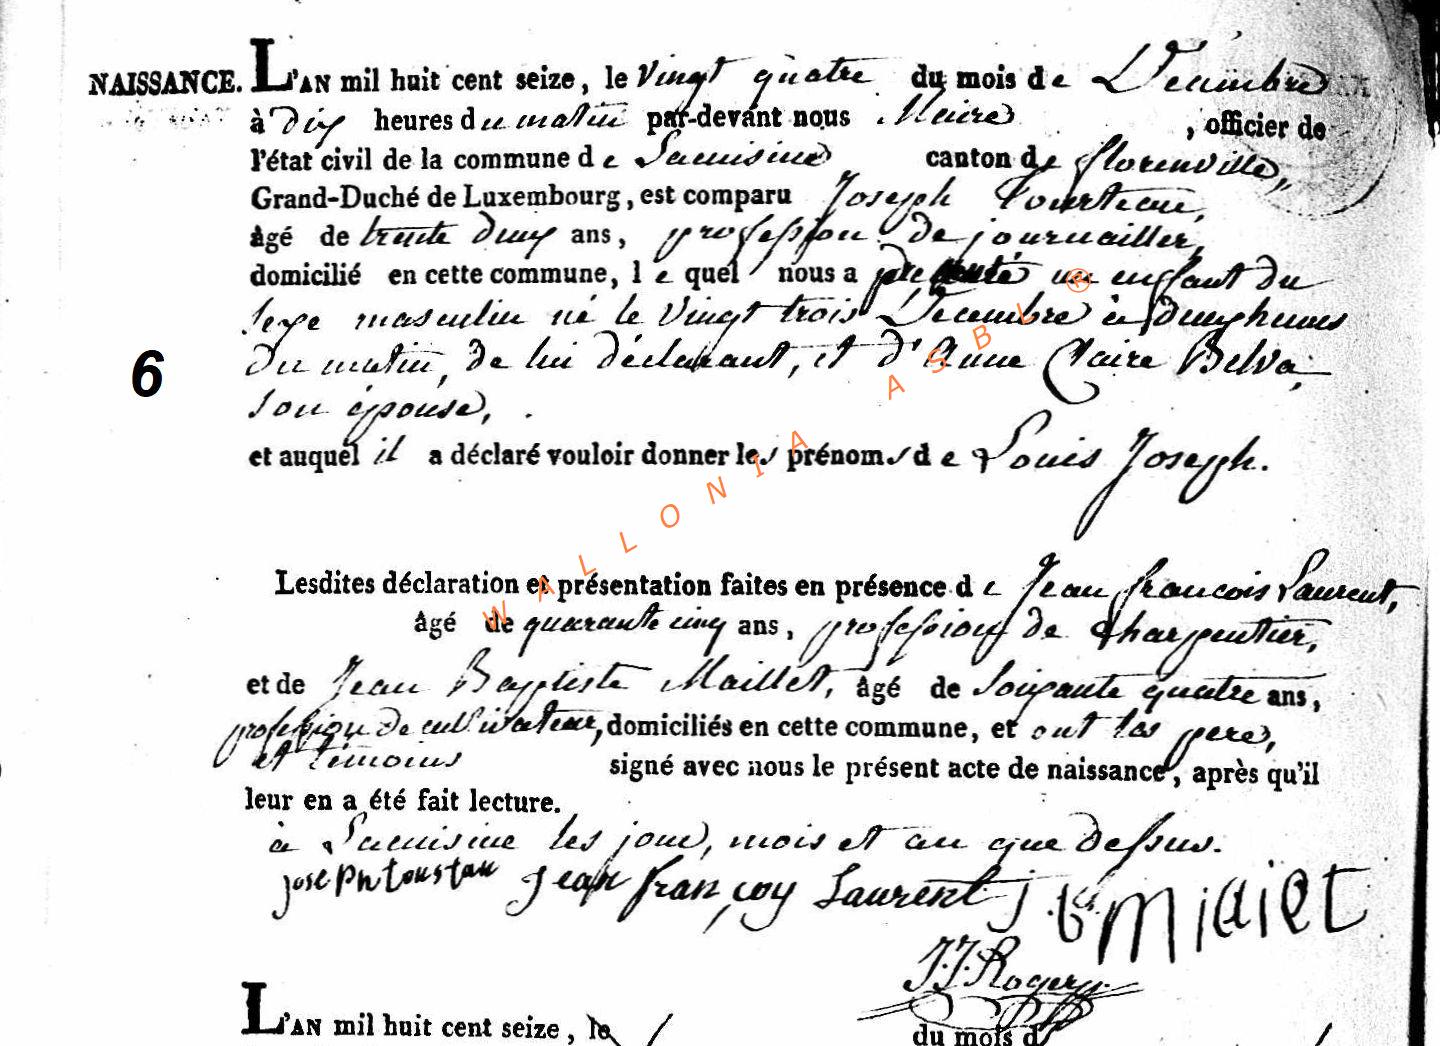 NAISSANCE. L'AN mil huit cent seize, le Vingt quatre du mois de Decembre
à dix heures du matin par-devant nous Maire, officier de
l'état civil de la commune de canton de florenville,
Grand-Duché de Luxembourg, est comparu Joseph Tourteau,
âgé de trente deux ans, profession de journailler,
domicilié en cette commune, lequel nous a présenté un enfant du
sexe masculin né le Vingt trois Decembre à deux heures
du matin, de lui déclarant, et d'Anne Claire Belva,
son épouse,
6
et auquel il a déclaré vouloir donner les prénoms de Louis Joseph.
Lesdites déclaration et présentation faites en présence de Jean françois Laurent,
âgé de quarante cinq ans, profession de Charpentier,
et de Jean Baptiste Maillet, âgé de soixante quatre ans,
profession de cultivateur, domiciliés en cette commune, et ont les pere,
et témoins signé avec nous le présent acte de naissance, après qu'il
leur en a été fait lecture.
à les jour, mois et an que dessus.
joseph toustau Jean françoy Laurent j. bt miaiet
J.J. Rogery
L'AN mil huit cent seize, le du mois d
WALLONIA ASBL ®